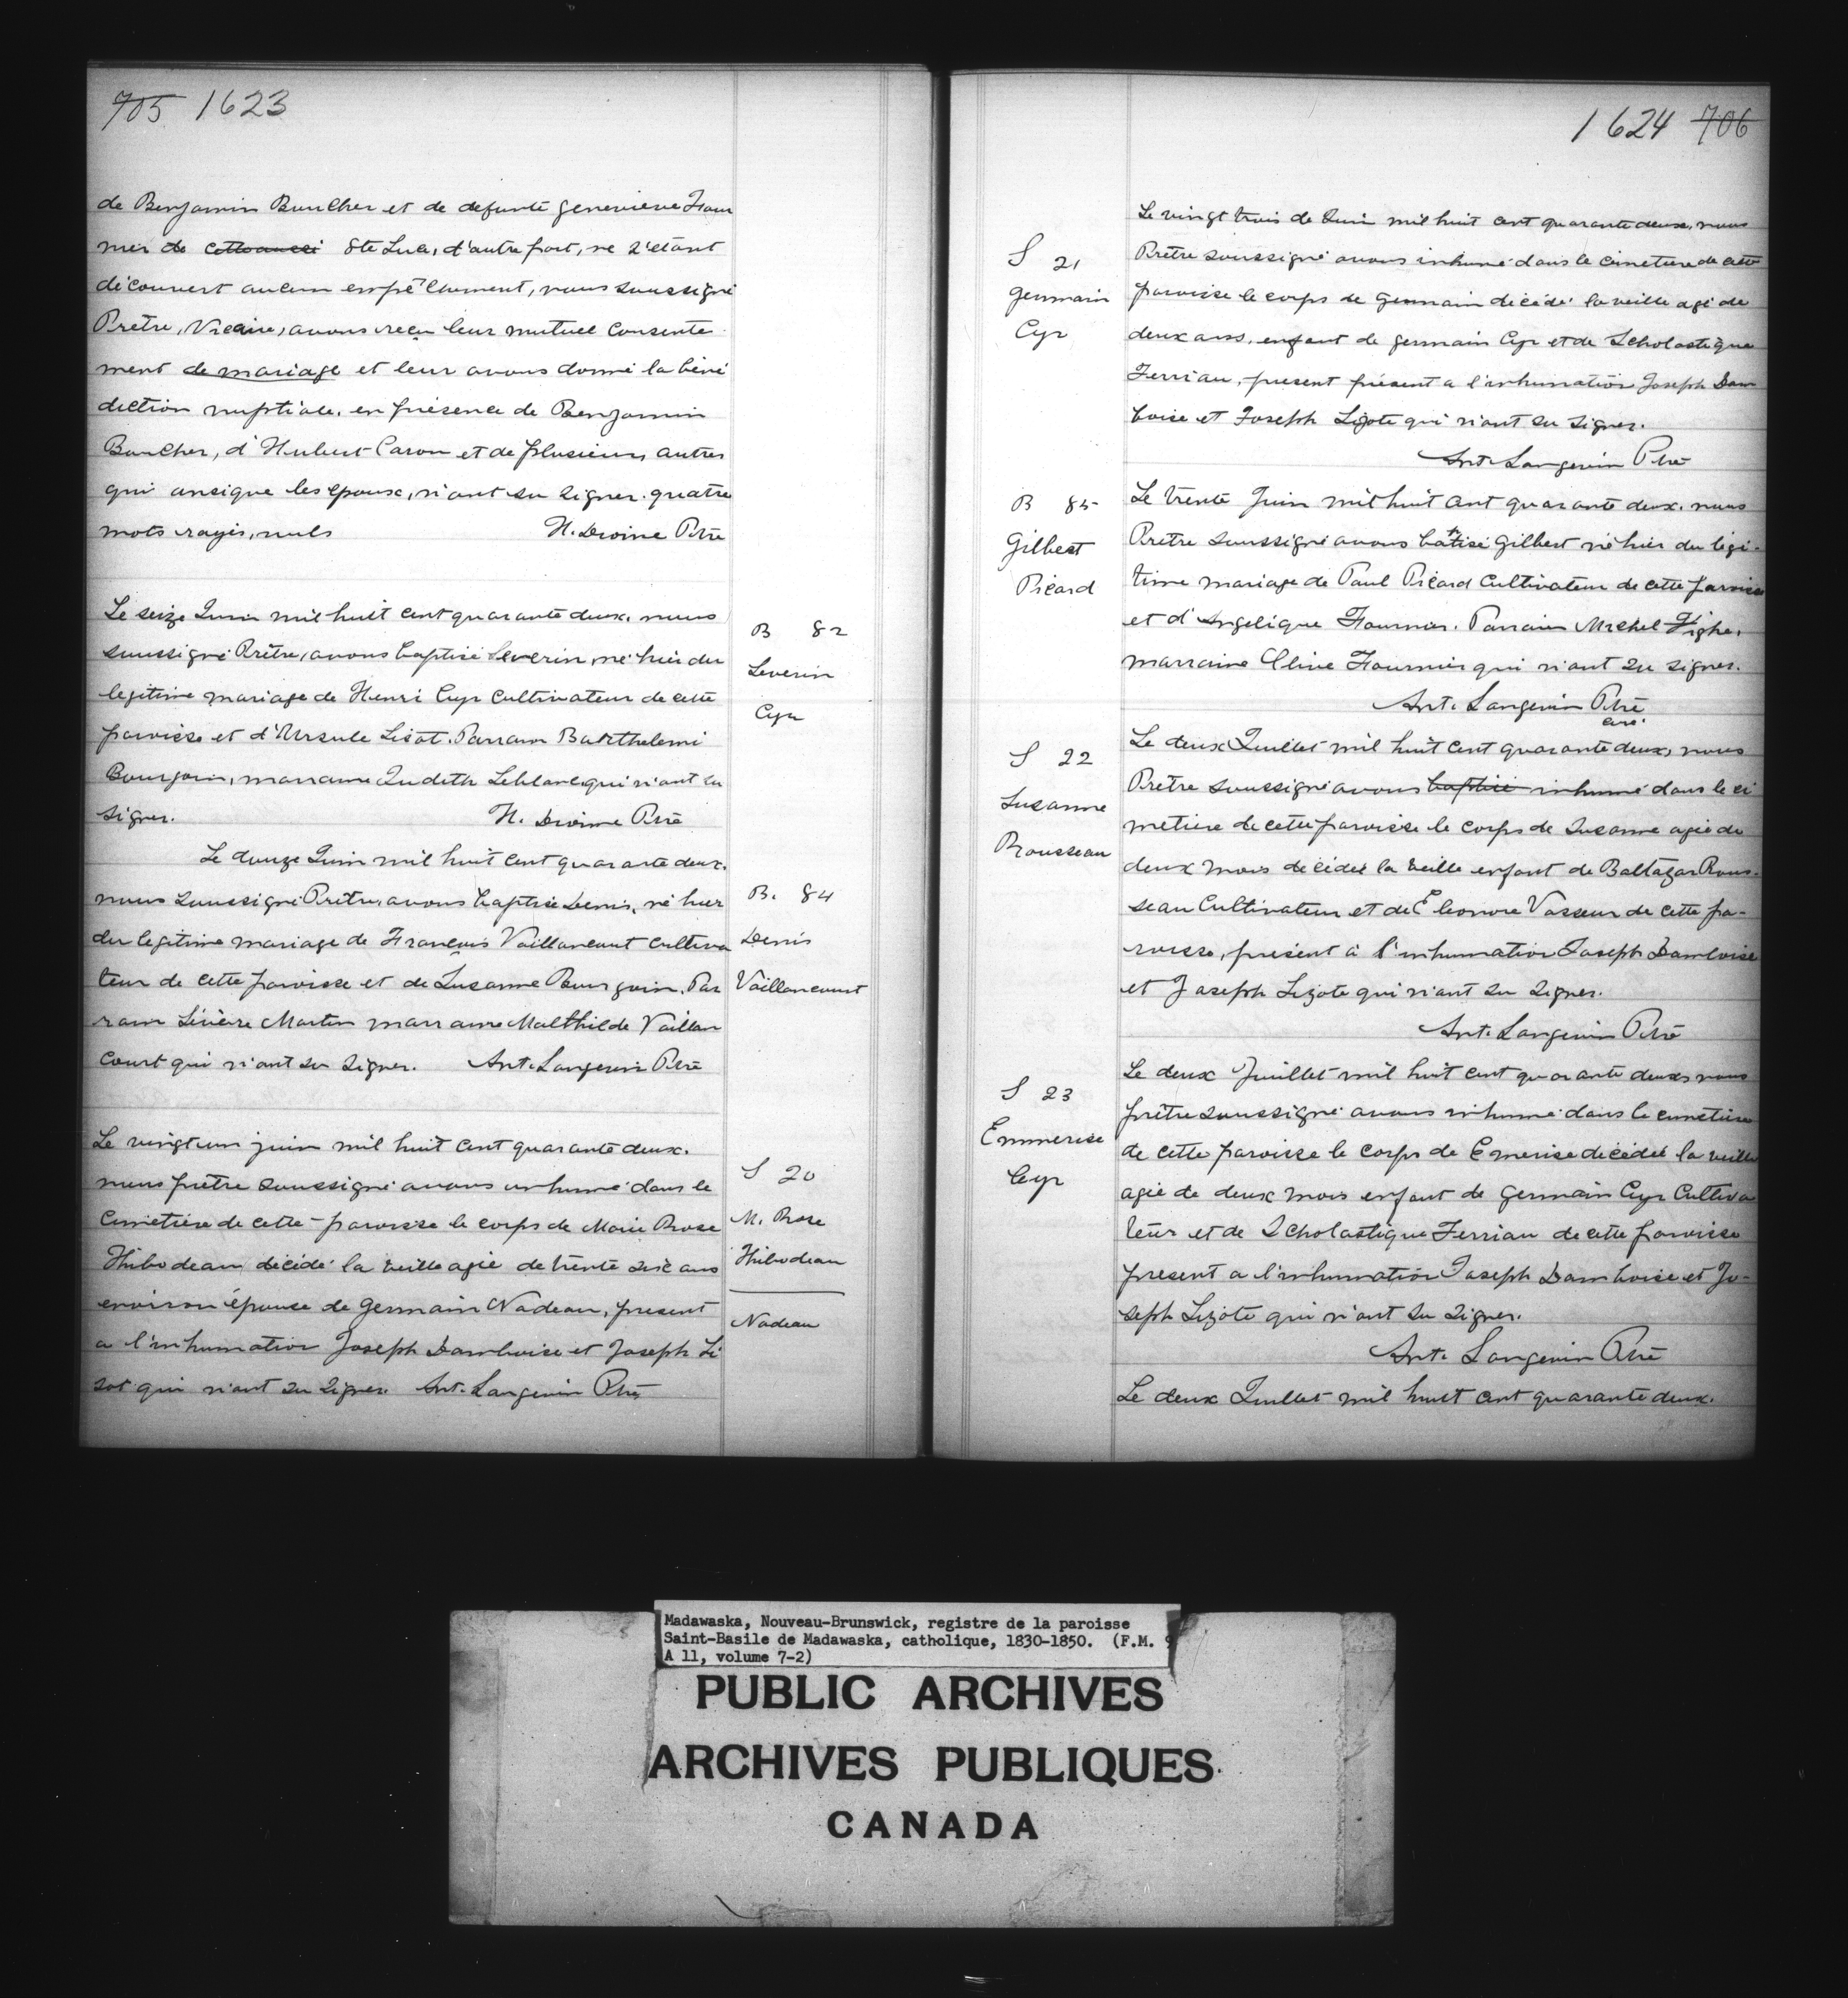 705 1623
de Benjamin Boucher et de defunte genevieve Four
nier de Ste Luce, d'autre part, ne s'étant
découvert aucun empêchement, nous soussigné
Prêtre, Vicaire, avons reçu leur mutuel consente
ment de mariage et leur avons donné la béné
diction nuptiale, en présence de Benjamin
Boucher, d'Hubert Caron et de plusieurs autres
qui ansique les epoux, n'ont su signer. quatre
mots rayés, nuls H. Dvoine Ptre
Le seize Juin mil huit cent quarante deux, nous
soussigné Prêtre, avons baptisé Severin, né hier du
legitime mariage de Henri Cyr Cultivateur de cette
paroisse et d'Ursule Lisot. Parrain Barthelemi
Bourgoin, marraine Judith Leblanc qui n'ont su
signer. H. Dvoine Ptre
B 82
Severin
Cyr
Le douze Juin mil huit cent quarante deux.
nous soussigné Prêtre, avons baptisé Denis, né hier
du legitime mariage de François Vaillancourt cultiva
teur de cette paroisse et de Suzanne Bourgoin. Par
rain Marten marraine Malthilde Vaillan
court qui n'ont su signer. Ant. Langevin Ptre
B. 84
Denis
Vaillancourt
Le vingt un juin mil huit cent quarante deux.
nous prêtre soussigné avons inhumé dans le
Cimetière de cette paroisse le corps de Marie Rose
Thibodeau décédé la veille agée de trente six ans
environ épouse de germain Nadeau, present
a l'inhumation Joseph Damboise et Joseph Li
sot qui n'ont su signer. Ant. Langevin Ptre
S 20
M. Rose
Thibodeau
Nadeau
1624 706
Le vingt trois de Juin mil huit cent quarante deux, nous
Prêtre soussigné avons inhumé dans le cimetiere de cette
paroisse le corps de Germain décédé la veille agé de
deux ans, enfant de germain Cyr et de Scholastique
Terriau, present présent a l'inhumation Joseph Dam
boise et Joseph Lizote qui n'ont su signer.
Ant. Langevin Ptre
S 21
Germain
Cyr
Le trente Juin mil huit cent quarante deux. nous
Prêtre soussigné avons batisé Gilbert né hier du légi-
time mariage de Paul Picard Cultivateur de cette paroisse
et d'Angelique Fournier. Parrain Michel
marraine Cline Fournier qui n'ont su signer.
Ant. Langevin Ptre
curé
B 85
Gilbert
Picard
Le deux Juillet mil huit cent quarante deux, nous
Prêtre soussigné avons baptisé inhumé dans le ci
metiere de cette paroisse le corps de Suzanne agée de
deux mois décédée la veille enfant de Baltazar Rous-
seau Cultivateur et de Eleonore Vasseur de cette pa-
roisse, présent à l'inhumation Joseph Damboise
et Joseph Lizote qui n'ont su signer.
Ant. Langevin Ptre
S 22
Suzanne
Rousseau
Le deux Juillet mil huit cent quarante deux, nous
prêtre soussigné avons inhumé dans le cimetiere
de cette paroisse le corps de Emerise décédée la veille
agée de deux mois enfant de germain Cyr Cultiva
teur et de Scholastique Terriau de cette paroisse
present a l'inhumation Joseph Damboise et Jo-
seph Lizote qui n'ont su signer.
Ant. Langevin Ptre
S 23
Emmerise
Cyr
Le deux Juillet mil huit cent quarante deux.
Madawaska, Nouveau-Brunswick, registre de la paroisse
Saint-Basile de Madawaska, catholique, 1830-1850. (F.M. 9
A 11, volume 7-2)
PUBLIC ARCHIVES
ARCHIVES PUBLIQUES
CANADA